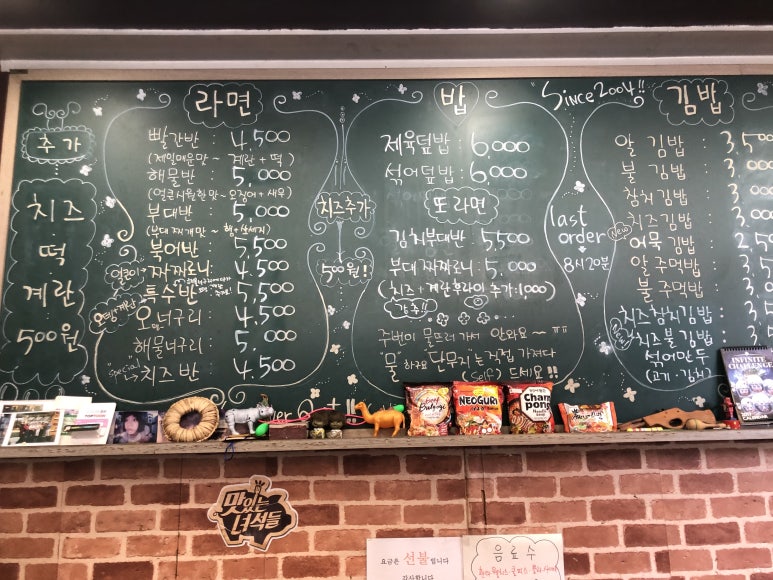 추가
치즈
떡
계란
500원
라면
빨간반 : 4,500
(제일매운맛~ 계란 + 떡)
해물반 : 5,000
(얼큰시원한맛~ 오징어 + 새우)
부대반 : 5,000
(부대찌개맛~ 햄+쏘세지)
북어반 : 5,500
짜짜로니 : 4,500
특수반 : 5,500
오너구리 : 4,500
해물너구리 : 5,000
"special" 치즈반 : 4,500
치즈추가
500원!
밥
제육덮밥 : 6,000
섞어덮밥 : 6,000
또라면
김치부대반 : 5,500
부대짜짜로니 : 5,000
(치즈 · 계란후라이 추가 : 1,000)
주번이 물뜨러가서 안와요~ ㅠㅠ
"물"하구요 단무지는 직접 가져다
(Self) 드세요!!
"Since 2004!!
last
order
8시20분
김밥
알 김밥 : 3,5
불 김밥 : 3,
참치김밥 : 3,
New 치즈김밥 : 3,0
어묵김밥 : 2,5
알 주먹밥 :
불 주먹밥 : 3,0
치즈참치김밥 :
치즈불김밥 :
섞어만두
(고기 · 김치)
INFINITE
CHALLENGE
NEOGURI
Cham
pong
맛있는
녀석들
요금은 선불입니다
감사합니다
음료수